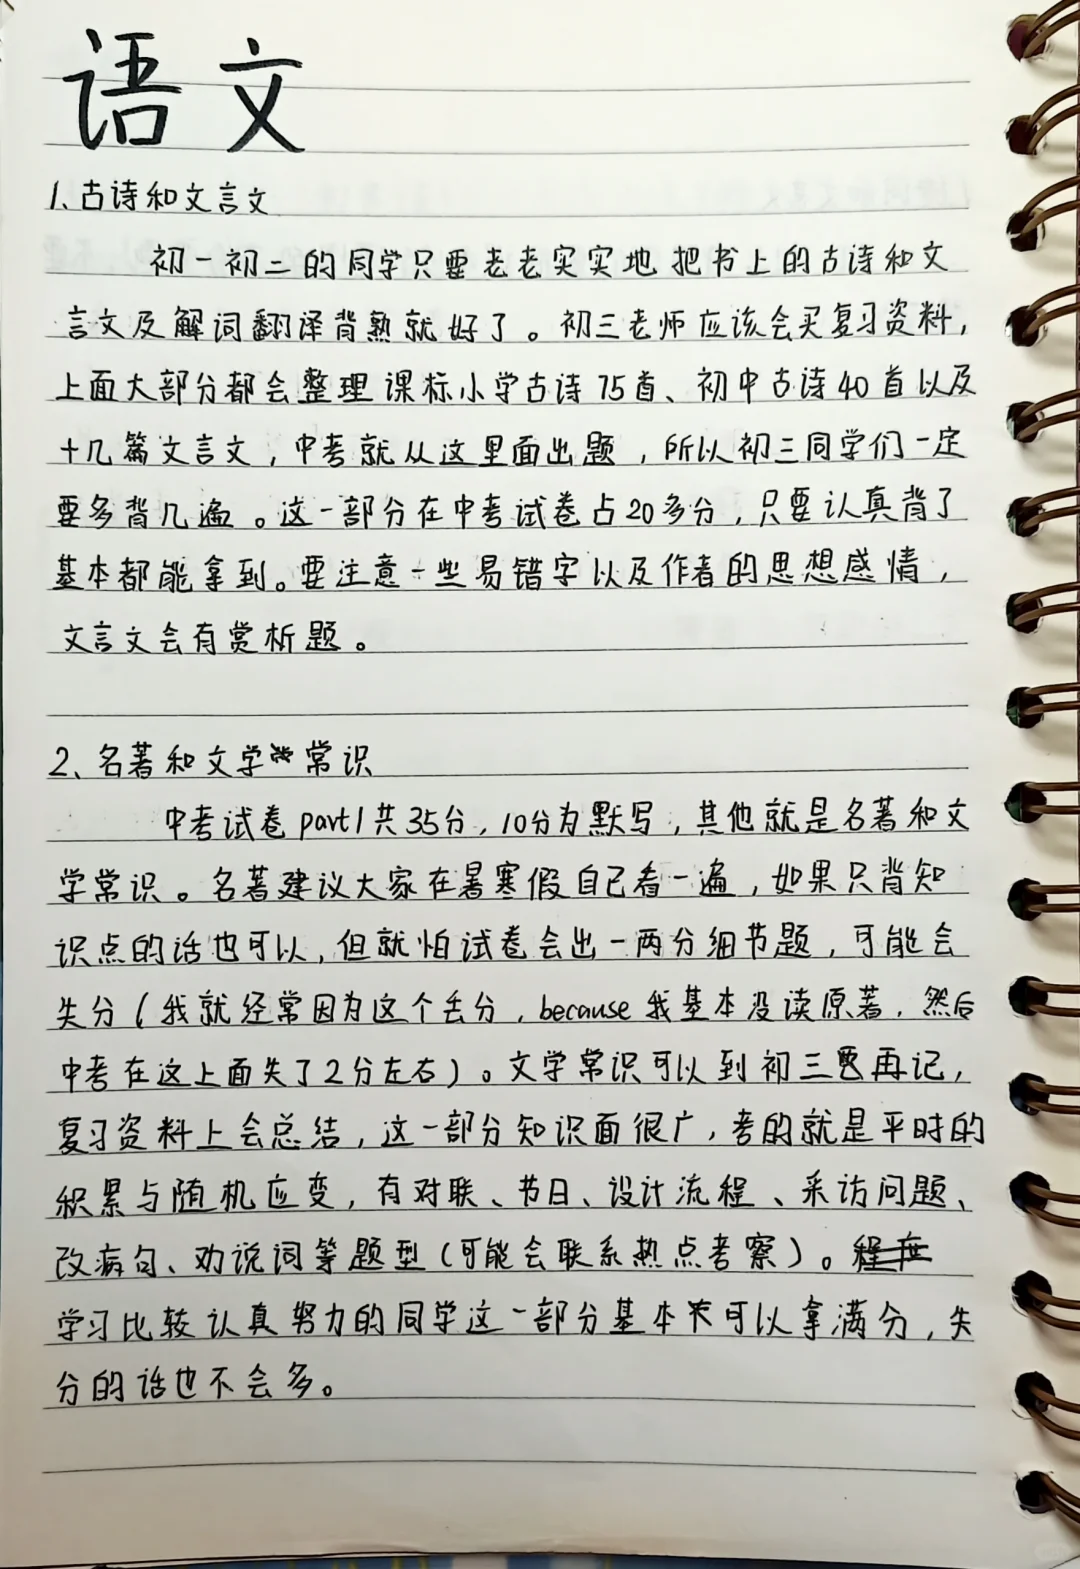 语文
1.古诗和文言文
初一初二的同学只要老老实实地把书上的古诗和文
言文及解词翻译背熟就好了。初三老师应该会买复习资料，
上面大部分都会整理课标小学古诗75首、初中古诗40首以及
十几篇文言文，中考就从这里面出题，所以初三同学们一定
要多背几遍。这一部分在中考试卷占20多分，只要认真背了
基本都能拿到。要注意一些易错字以及作者的思想感情，
文言文会有赏析题。
2、名著和文学常识
中考试卷part1共35分，10分为默写，其他就是名著和文
学常识。名著建议大家在暑寒假自己看一遍，如果只背知
识点的话也可以，但就怕试卷会出一两分细节题，可能会
失分（我就经常因为这个丢分，because我基本没读原著，然后
中考在这上面失了2分左右）。文学常识可以到初三再记，
复习资料上会总结，这一部分知识面很广，考的就是平时的
积累与随机应变，有对联、节日、设计流程、采访问题、
改病句、劝说词等题型（可能会联系热点考察）。
学习比较认真努力的同学这一部分基本可以拿满分，失
分的话也不会多。